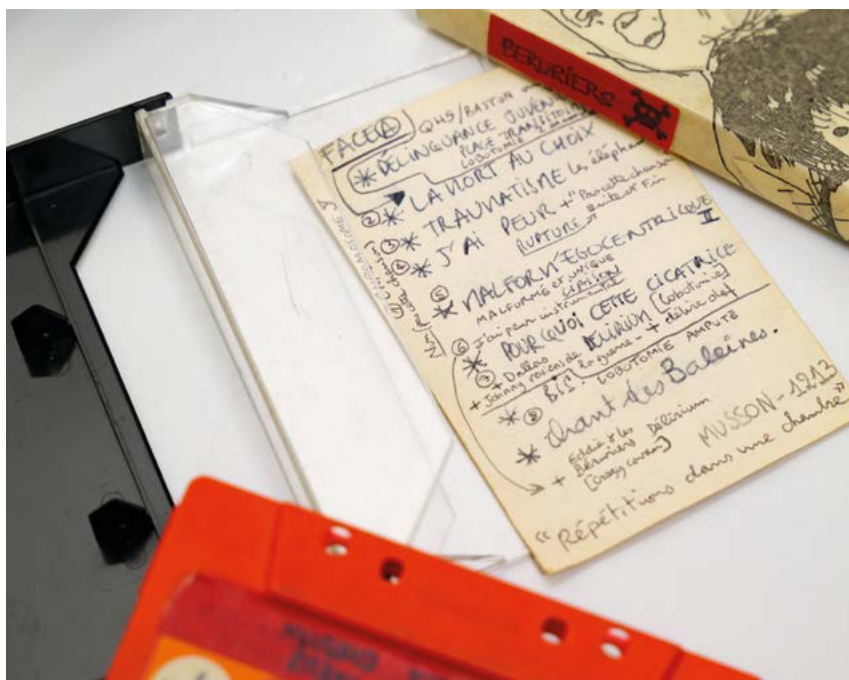 BERURIERS
FACE A
QHS/BASTON
* DÉLINQUANCE JUVEN
PLACE TRANSITOI
LOBOTOMIE
LA MORT AU CHOIX
② * TRAUMATISME les éléphan
③ * J'AI PEUR + "Pas cette chanson
④ suite et fin
RUPTURE"
⑤ * MALFORM' EGOCENTRIQUE
II
MALFORMÉ et UNIQUE
LIAISON
⑥ J'ai peur instrumental
* POURQUOI CETTE CICATRICE
⑦ + Dallas DELIRIUM [lobotomie]
+ Johnny reviens de la guerre - + délire
BIS: LOBOTOMIE AMPUTÉ
* ⑧ chant des Baleines.
* Eddie & les
+ Béruriers Délirium
[crazy caven]
MUSSON - 1213
"Répétitions dans une chambre"